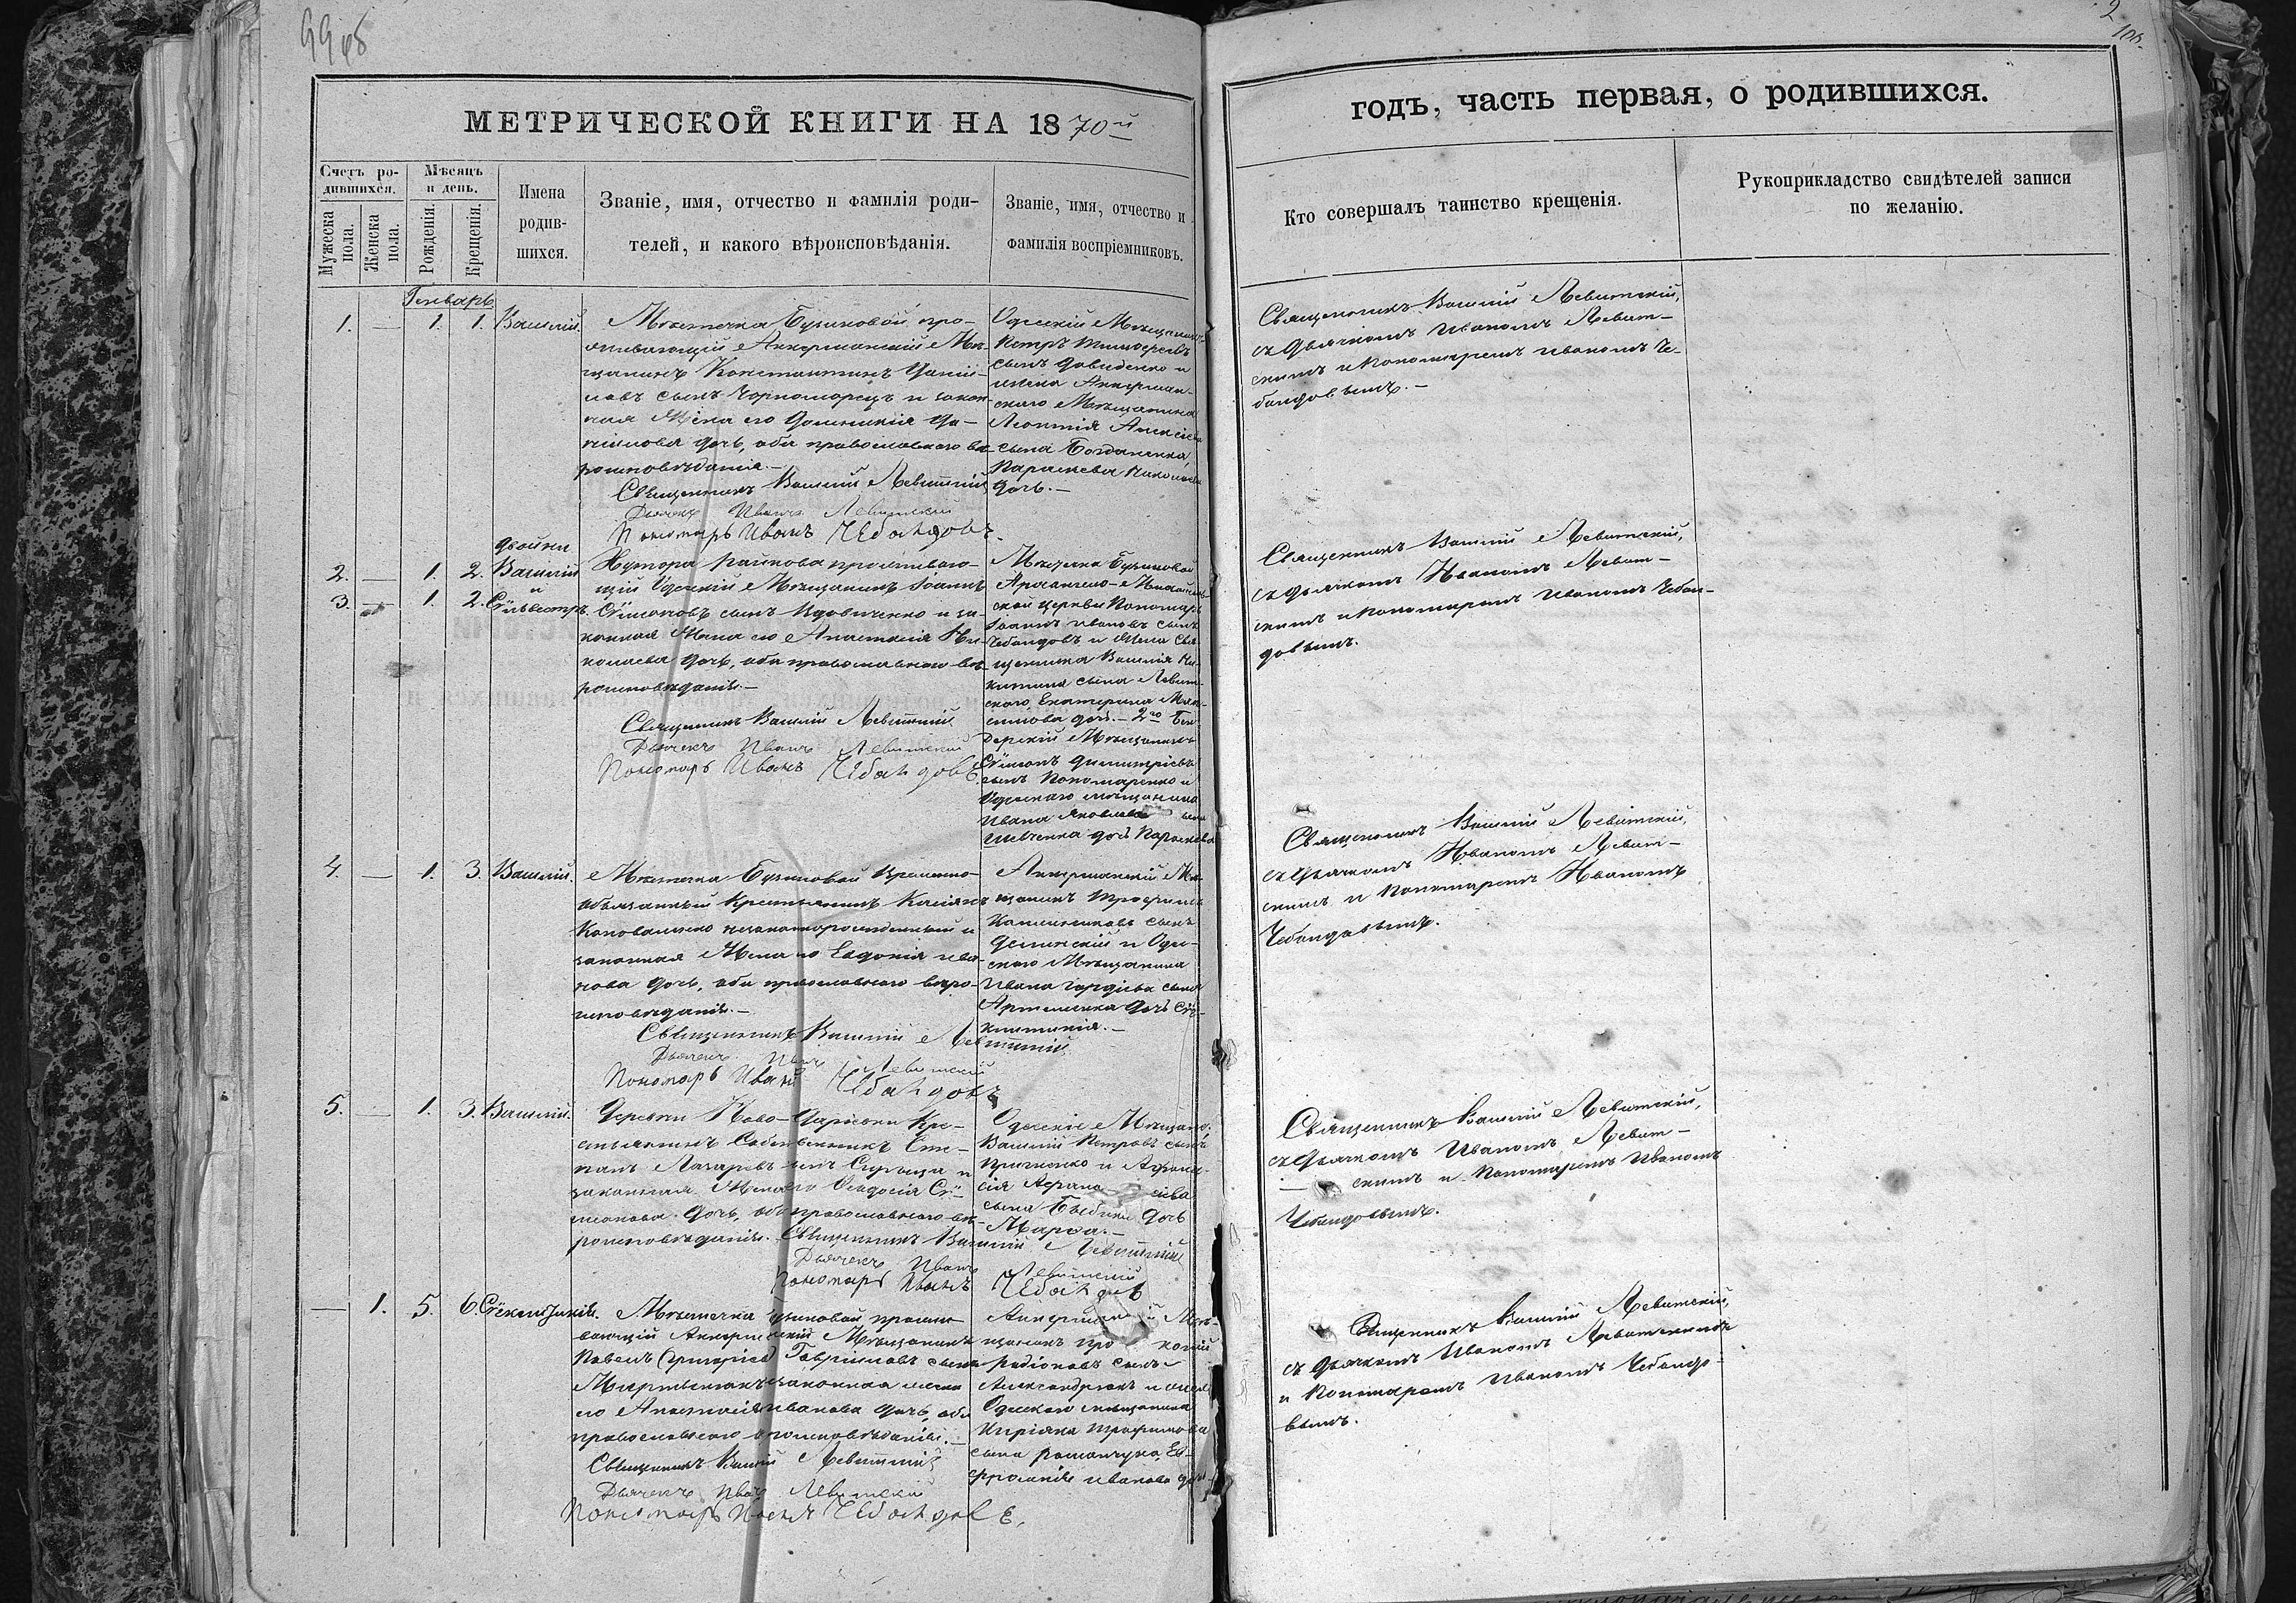 99 об
МЕТРИЧЕСКОЙ КНИГИ НА 1870й
Счетъ ро-
дившихся.
Мѣсяцъ
и день.
Мужеска
пола.
Женска
пола.
Рожденія.
Крещенія.
Имена
родив-
шихся.
Званіе, имя, отчество и фамилія роди-
телей, и какого вѣроисповѣданія.
Званіе, имя, отчество и
фамилія воспріемниковъ.
Генварь
1. — 1. 1. Василій.
Мѣстечка Бузиновой про-
живающій Аккерманскій Мѣ-
щанинъ Константинъ
сынъ Чорноморецъ и закон-
ная Жена его Домникія
дочь, оба православнаго вѣ-
роисповѣданія.—
Священникъ Василій Левитскій
Дьячекъ Иванъ Левитскій
Пономарь Иванъ Чебандовъ.
Одесскій Мѣщанинъ
Петръ Тимофеевъ
сынъ Давиденко и
жена Аккерман-
скаго Мѣщанина
Леонтія Алексіева
сына Богданенка
Параскева Николаева
дочь.—
двойни
2. — 1. 2. Василій
и
3. — 1. 2. Сѵльвестръ.
Хутора Пайкова прожива-
щій Одесскій Мѣщанинъ Іоаннъ
Сѵмоновъ сынъ Вдовиченко и за-
конная Жена его Анастасія Ни-
колаева дочь, оба православнаго вѣ-
роисповѣданія.—
Священникъ Василій Левитскій
Дьячекъ Иванъ Левитскій
Пономарь Иванъ Чебандовъ
Мѣстечка Бузиновой
Архангело-Михайлов-
ской церкви Пономарь
Іоаннъ Ивановъ сынъ
Чебандовъ и Жена Свя-
щенника Василія Ни-
китина сына Левит-
скаго Екатерина Мак-
симова дочь.— 2го Бен-
дерскій Мѣщанинъ
Сѵмеонъ Димитріевъ
сынъ Пономаренко и
Одесскаго мѣщанина
Ивана Яковлева сына
Шевченка дочь Параскева
4. — 1. 3. Василій.
Мѣстечка Бузиновой Временно-
обязанный Крестьянинъ Касіянъ
Коноваленко незаконнорожденный и
законная Жена его Евдокія Ива-
нова дочь, оба православнаго вѣро-
исповѣданія.—
Священникъ Василій Левитскій
Дьячекъ Иванъ Левитскій
Пономарь Иванъ Чебандовъ
Аккерманскій Мѣ-
щанинъ Трофимъ
сынъ
и Одес-
скаго Мѣщанина
Ивана Гордіева сына
Артеменка дочь Сѵ-
нклитикія.—
5. — 1. 3. Василій.
Деревни Ново-Дарьевки Кре-
стьянинъ Собственникъ Сте-
панъ Лазаревъ сынъ и
законная Жена его Ѳеодосія Сѵ-
меонова дочь, оба православнаго вѣ-
роисповѣданія. Священникъ Василій Левитскій
Дьячекъ Иванъ Левитскій
Пономарь Иванъ Чебандовъ
Одесскіе Мѣщане:
Василій Петровъ сынъ
и Афана-
сія Афанасіева
сына дочь
Марѳа.—
— 1. 5. 6.
Мѣстечка Бузиновой прожи-
вающій Аккерманскій Мѣщанинъ
Павелъ (Григорьев) Гавриловъ сынъ
законная жена
его Анастасія Иванова дочь, оба
православнаго вѣроисповѣданія.—
Священникъ Василій Левитскій
Дьячекъ Иванъ Левитскій
Пономарь Иванъ Чебандовъ.
Аккерманскій Мѣ-
щанинъ Прокопій
Радіоновъ сынъ
Александрюкъ и жена
Одесскаго мѣщанина
Киріяка Трофимова
сына Романчука Ев-
фросинія Иванова дочь.
2
100.
годъ, часть первая, о родившихся.
Кто совершалъ таинство крещенія.
Рукоприкладство свидѣтелей записи
по желанію.
Священникъ Василій Левитскій,
съ Дьячкомъ Иваномъ Левит-
скимъ и Пономаремъ Иваномъ Че-
бандовымъ.—
Священникъ Василій Левитскій,
съ Дьячкомъ Иваномъ Левит-
скимъ и Пономаремъ Иваномъ Чебан-
довымъ.
Священникъ Василій Левитскій,
съ Дьячкомъ Иваномъ Левит-
скимъ и Пономаремъ Иваномъ
Чебандовымъ.
Священникъ Василій Левитскій,
съ Дьячкомъ Иваномъ Левит-
скимъ и Пономаремъ Иваномъ
Чебандовымъ.
Священникъ Василій Левитскій,
съ Дьячкомъ Иваномъ Левитскимъ
и Пономаремъ Иваномъ Чебандо-
вымъ.